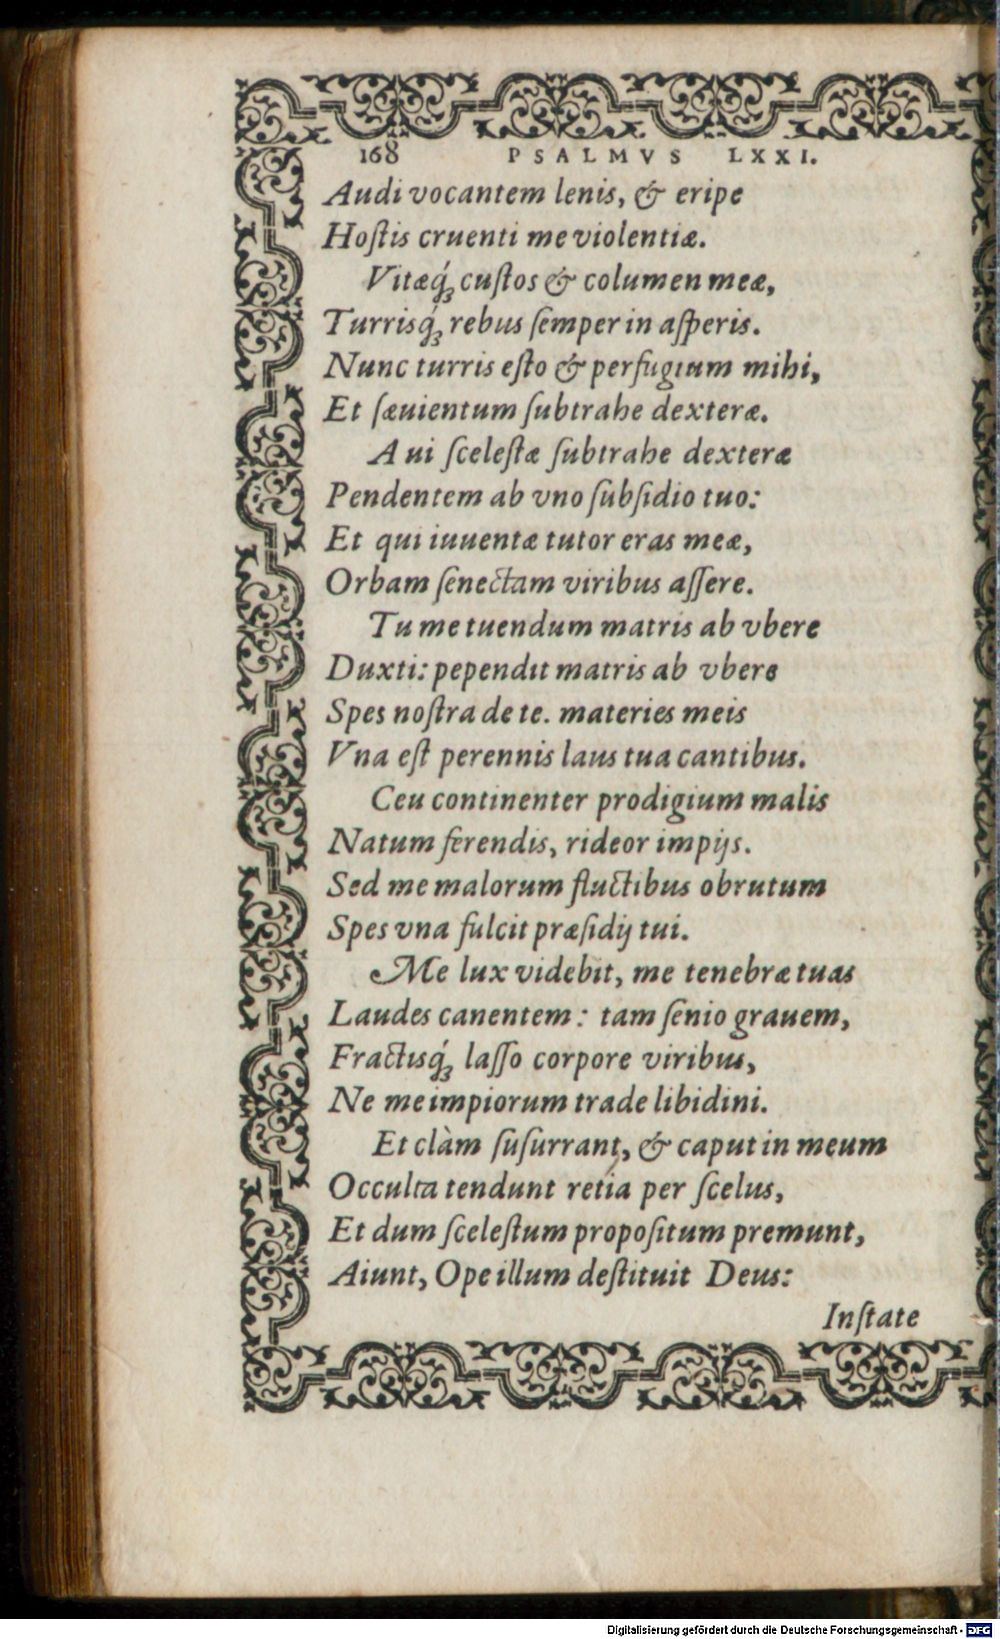 168 PSALMVS LXXI.
Audi vocantem lenis, & eripe
Hoſtis cruenti me violentiæ.
Vitæq́ꝫ cuſtos & columen meæ,
Turrisq́ꝫ rebus ſemper in aſperis.
Nunc turris eſto & perfugium mihi,
Et ſæuientum ſubtrahe dexteræ.
A ui ſceleſtæ ſubtrahe dexteræ
Pendentem ab vno ſubſidio tuo:
Et qui iuuentæ tutor eras meæ,
Orbam ſenectam viribus aſſere.
Tu me tuendum matris ab vbere
Duxti: pependit matris ab vbere
Spes noſtra de te. materies meis
Vna eſt perennis laus tua cantibus.
Ceu continenter prodigium malis
Natum ferendis, rideor impijs.
Sed me malorum fluctibus obrutum
Spes vna fulcit præſidij tui.
Me lux videbit, me tenebræ tuas
Laudes canentem: tam ſenio grauem,
Fractisq́ꝫ laſſo corpore viribus,
Ne me impiorum trade libidini.
Et clàm ſuſurrant, & caput in meum
Occulta tendunt retia per ſcelus,
Et dum ſceleſtum propoſitum premunt,
Aiunt, Ope illum deſtituit Deus:
Inſtate
Digitalisierung gefördert durch die Deutsche Forschungsgemeinschaft - DFG